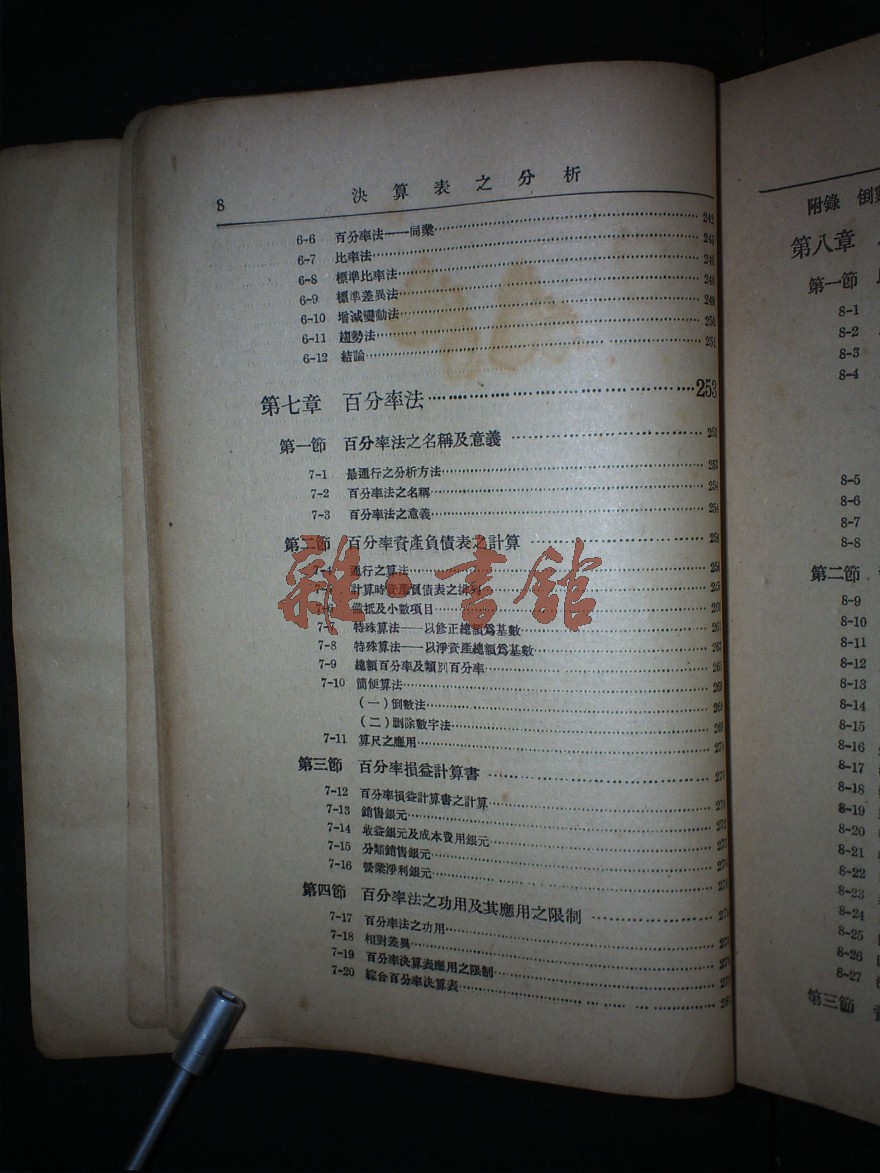 8 決算表之分析
6-6 百分率法——同槼 242
6-7 比率法 243
6-8 標準比率法 246
6-9 標準差異法 248
6-10 增減變動法 249
6-11 趨勢法 250
6-12 結論 251
第七章 百分率法 253
第一節 百分率法之名稱及意義 253
7-1 最通行之分析方法 253
7-2 百分率法之名稱 254
7-3 百分率法之意義 254
第二節 百分率資產負債表之計算
7-4 通行之算法
7-5 計算時資產負債表之排列
7-6 備抵及小數項目 260
7-7 特殊算法——以修正總額爲基數
7-8 特殊算法——以淨資產總額爲基數
7-9 總額百分率及類別百分率
7-10 簡便算法
(一)倒數法
(二)刪除數字法
7-11 算尺之應用
第三節 百分率損益計算書
7-12 百分率損益計算書之計算
7-13 銷售銀元
7-14 收益銀元及成本費用銀元
7-15 分類銷售銀元
7-16 營業淨利銀元
第四節 百分率法之功用及其應用之限制
7-17 百分率法之功用
7-18 相對差異
7-19 百分率決算表應用之限制
7-20 綜合百分率決算表
雜·書館
附錄 倒
第八章
第一節
8-1
8-2
8-3
8-4
8-5
8-6
8-7
8-8
第二節
8-9
8-10
8-11
8-12
8-13
8-14
8-15
8-16
8-17
8-18
8-19
8-20
8-21
8-22
8-23
8-24
8-25
8-26
8-27
第三節